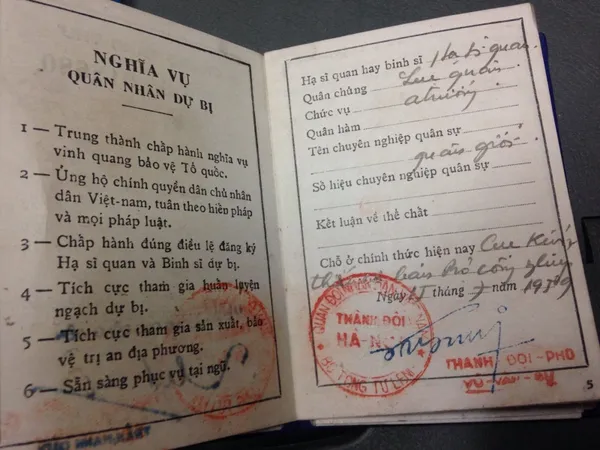 NGHĨA VỤ
QUÂN NHÂN DỰ BỊ
1 — Trung thành chấp hành nghĩa vụ
vinh quang bảo vệ Tổ quốc.
2 — Ủng hộ chính quyền dân chủ nhân
dân Việt-nam, tuân theo hiến pháp
và mọi pháp luật.
3 — Chấp hành đúng điều lệ đăng ký
Hạ sĩ quan và Binh sĩ dự bị.
4 — Tích cực tham gia huấn luyện
ngạch dự bị.
5 — Tích cực tham gia sản xuất, bảo
vệ trị an địa phương.
6 — Sẵn sàng phục vụ tại ngũ.
Hạ sĩ quan hay binh sĩ Hạ sĩ quan
Quân chủng Lục quân
Chức vụ
Quân hàm
Tên chuyên nghiệp quân sự
quân giới
Số hiệu chuyên nghiệp quân sự
Kết luận về thể chất
Chỗ ở chính thức hiện nay
Ngày tháng 7 năm 19
QUÂN ĐỘI NHÂN DÂN
THÀNH ĐỘI
HÀ-NỘI
BỘ TỔNG TƯ LỆNH
THÀNH ĐỘI-PHÓ
5